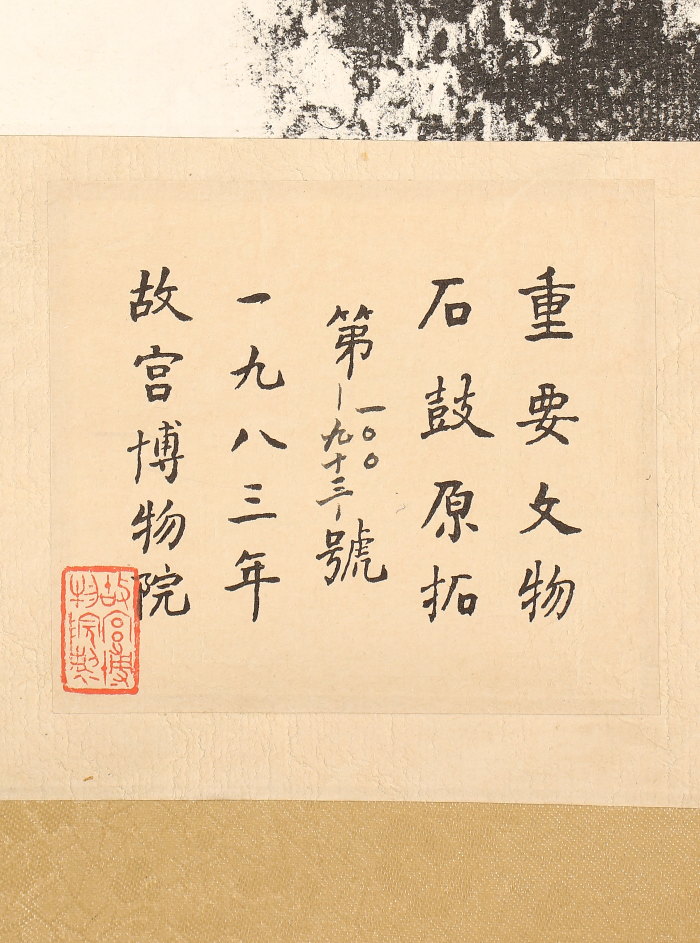 重要文物
石鼓原拓
第一〇〇-九十三-號
一九八三年
故宮博物院
故宮博
物院製